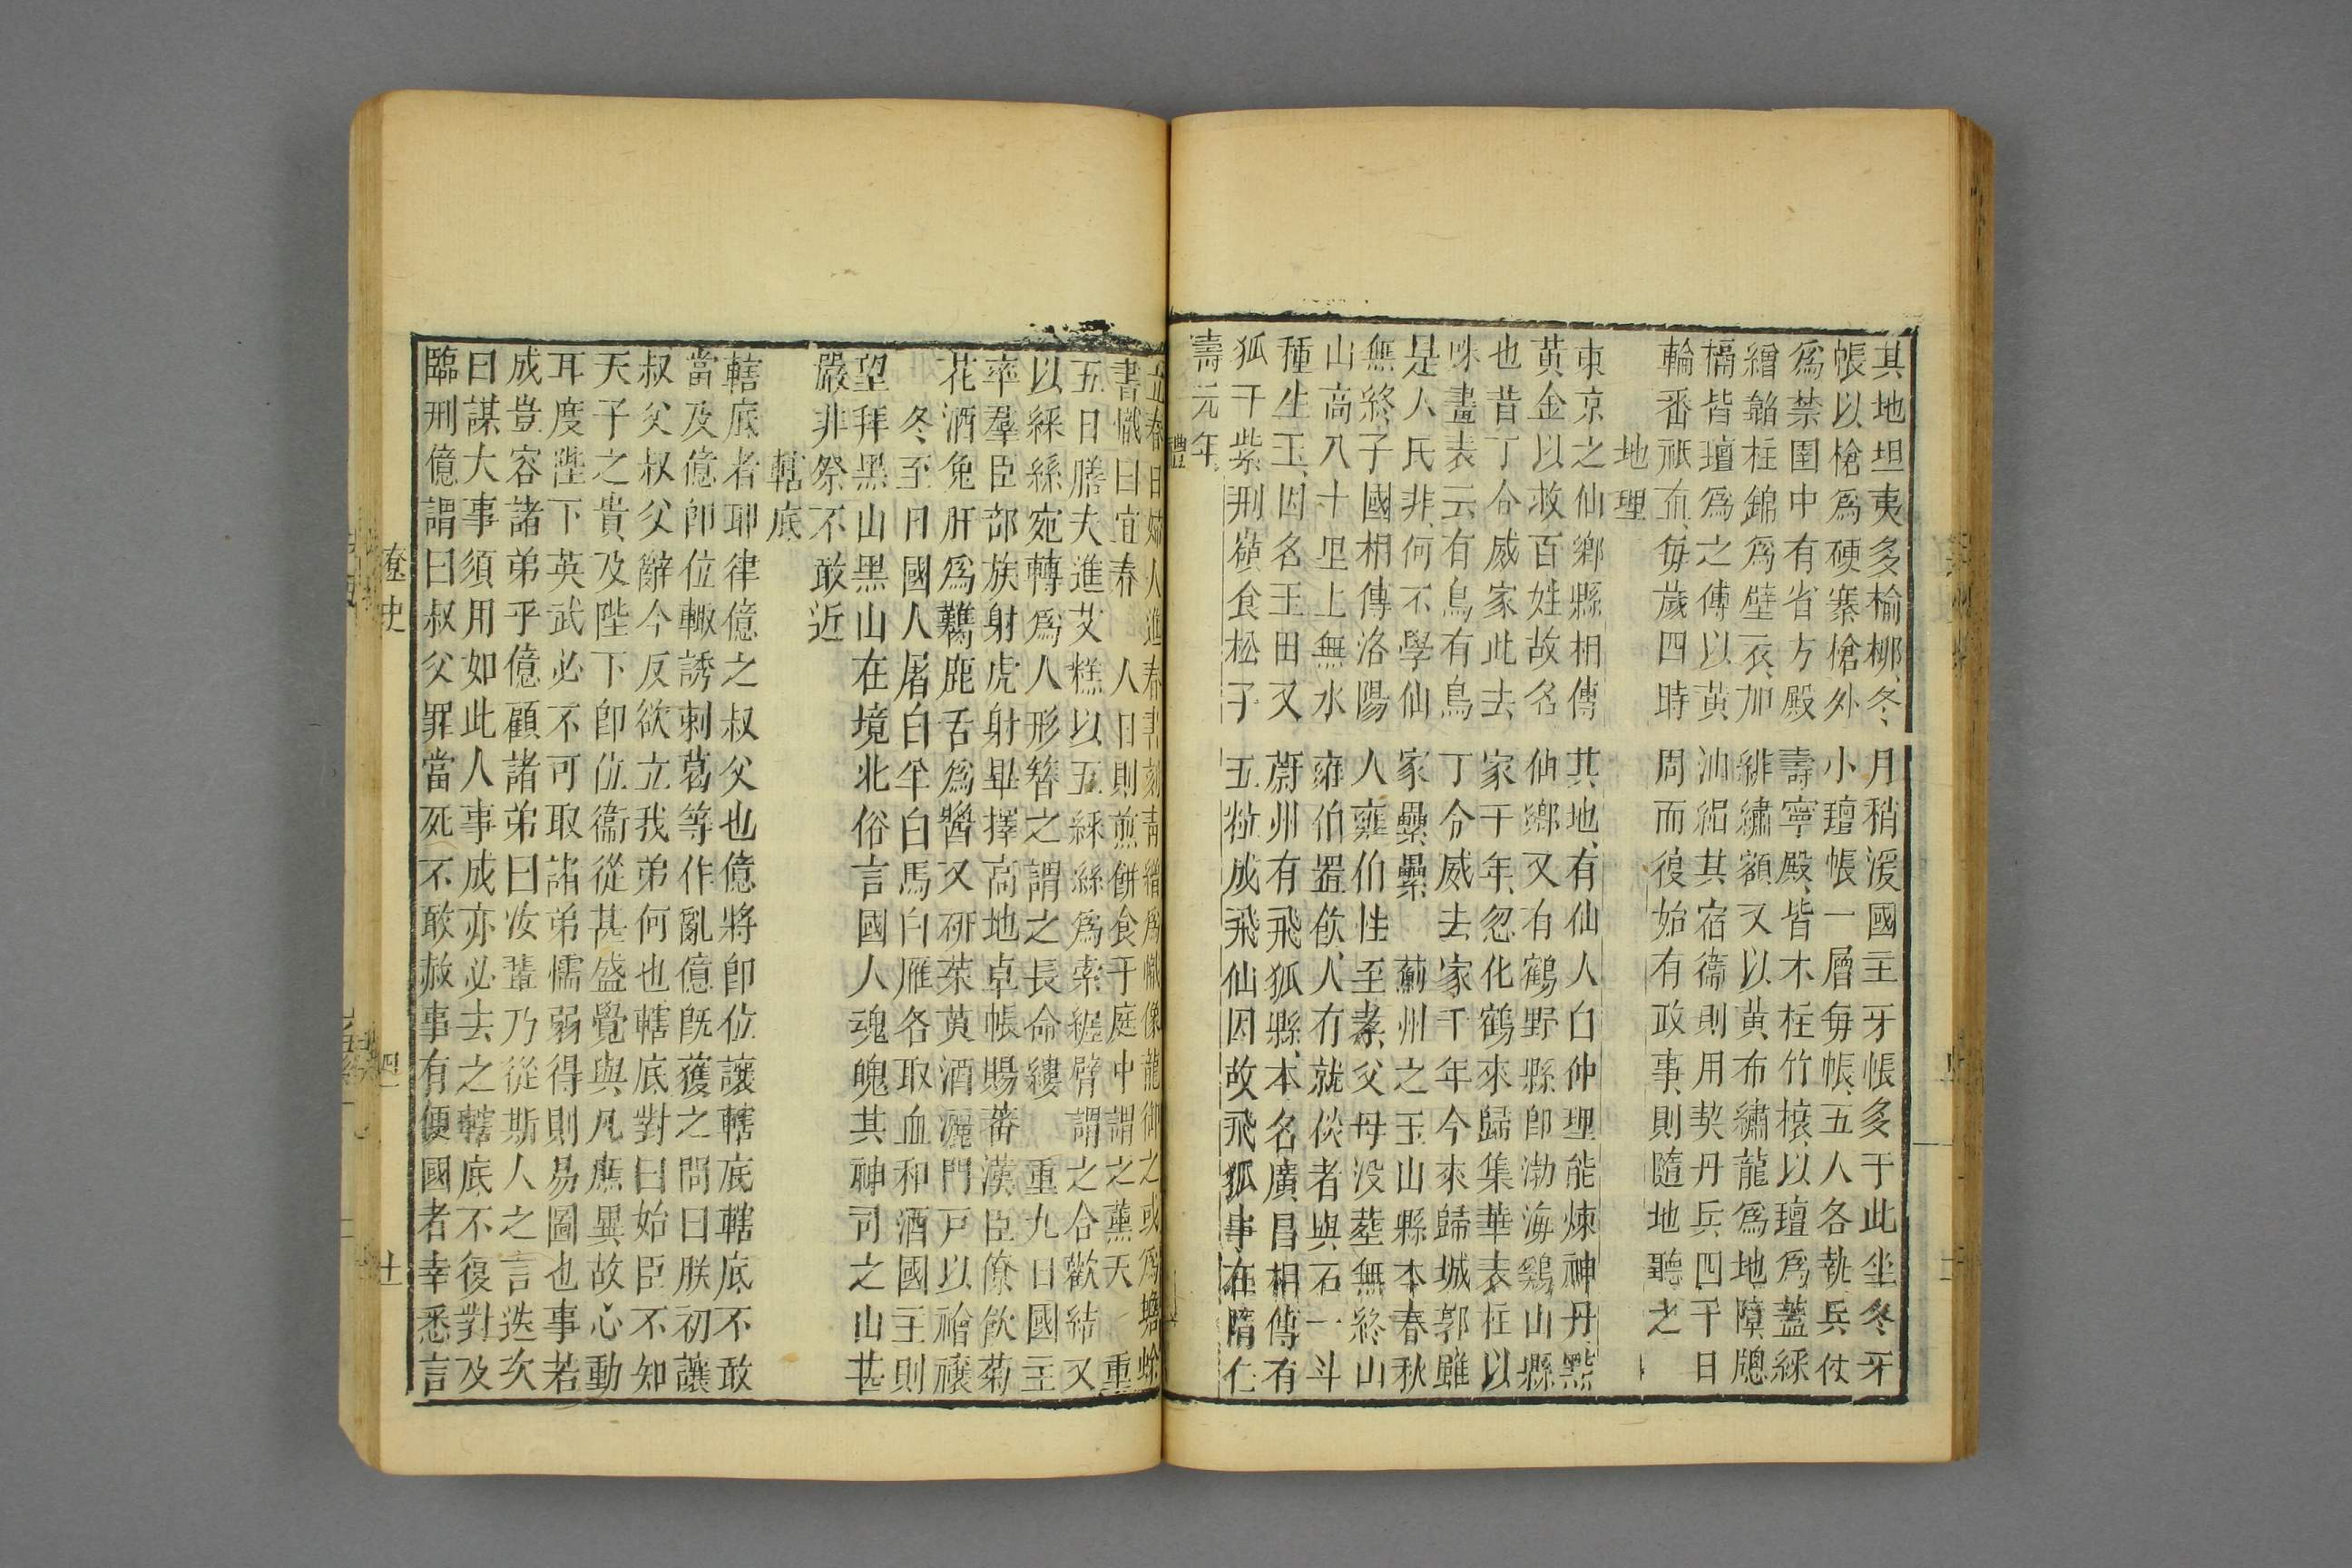 其地坦夷多榆柳冬月稍湲國主牙帳多于此坐冬牙
帳以槍爲硬寨槍外小氊帳一層每帳五人各執兵仗
爲禁圍中有省方殿壽寧殿皆木柱竹榱以氊爲蓋綵
繪韜柱錦爲壁衣加緋繡額又以黃布繡龍爲地障牕
槅皆氊爲之傅以黃油絹其宿衞則用契丹兵四千日
輪番祇直每歲四時周而復始有政事則隨地聽之
地理
東京之仙鄉縣相傳其地有仙人白仲理能煉神丹點
黃金以救百姓故名仙鄉又有鶴野縣即渤海鷄山縣
也昔丁令威家此去家千年忽化鶴來歸集華表柱以
咮畫表云有鳥有鳥丁令威去家千年今來歸城郭雖
是人民非何不學仙家壘壘 薊州之玉山縣本春秋
無終子國相傳洛陽人雍伯性至孝父母没葬無終山
山高八十里上無水雍伯置飲人有就飲者與石一斗
種生玉因名玉田又蔚州有飛狐縣本名廣昌相傳有
狐于紫荆嶺食松子五粒成飛仙因故飛狐事在隋仁
壽元年
禮
立春日婦人進春書刻青繒爲幟像龍御之或爲蟾蜍
書幟曰宜春 人日則煎餅食于庭中謂之薰天 重
五日膳夫進艾糕以五綵絲爲索纏臂謂之合歡結又
以綵絲宛轉爲人形簪之謂之長命縷 重九日國主
率羣臣部族射虎射畢擇高地卓帳賜蕃漢臣僚飲菊
花酒兔肝爲鸛鹿舌爲醬又研茱萸酒灑門戸以禬禳
冬至日國人屠白羊白馬白雁各取血和酒國主則
望拜黑山黑山在境北俗言國人魂魄其神司之山甚
嚴非祭不敢近
轄底
轄底者耶律億之叔父也億將卽位讓轄底轄底不敢
當及億卽位輙誘剌葛等作亂億旣獲之問曰朕初讓
叔父叔父辭今反欲立我弟何也轄底對曰始臣不知
天子之貴及陛下卽位衞從甚盛覺與凡庶異故心動
耳度陛下英武必不可取諸弟懦弱得則易圖也事若
成豈容諸弟乎億顧諸弟曰汝輩乃從斯人之言迭次
曰謀大事須用如此人事成亦必去之轄底不復對及
臨刑億謂曰叔父罪當死不敢赦事有便國者幸悉言
遼史
四
十